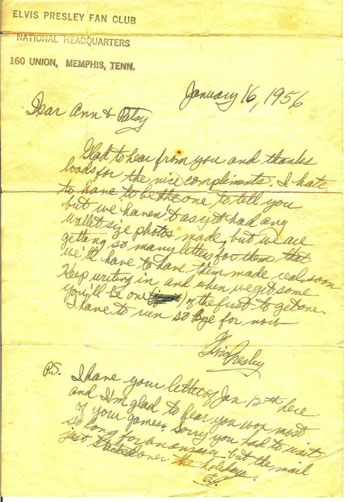 ELVIS PRESLEY FAN CLUB
NATIONAL HEADQUARTERS
160 UNION, MEMPHIS, TENN.
January 16, 1956
Dear Ann & Patsy
Glad to hear from you and thanks
loads for the nice compliments. I hate
to have to be the one to tell you
but we haven't as yet had any
wallet size photos made, but we are
getting so many letters for them that
we'll have to have them made real soon
Keep writing in and when we get some
you'll be one of the first to get one
I have to run so bye for now
Elvis Presley
P.S. I have your letter of Jan 12th here
and I'm glad to hear you won most
of your games. Sorry you had to wait
so long for an answer but the mail
just stacked over the holidays.